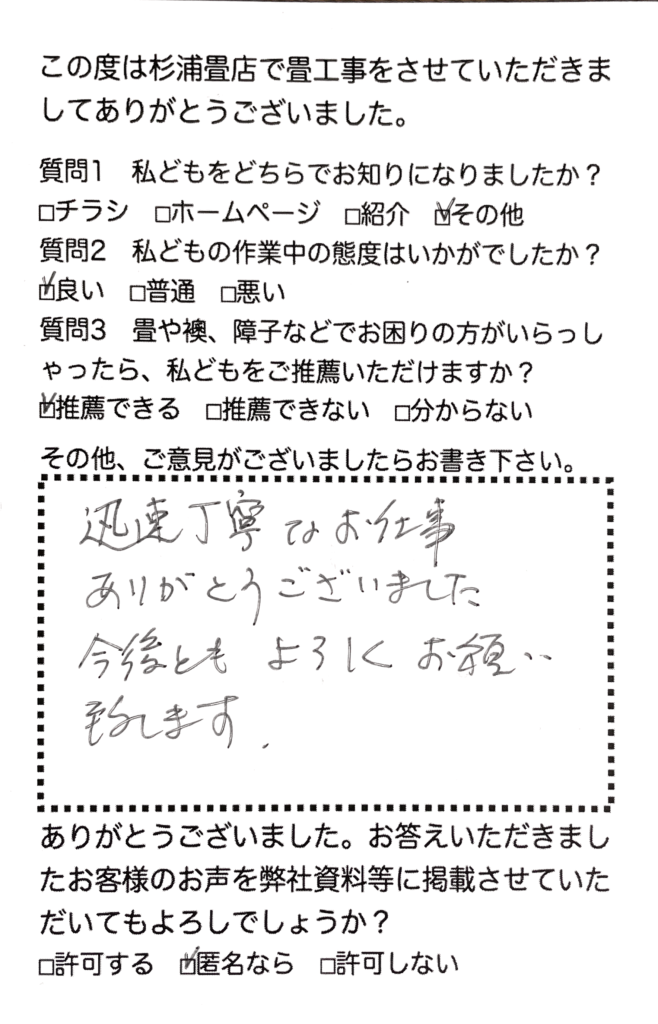 この度は杉浦畳店で畳工事をさせていただきま
してありがとうございました。
質問1　私どもをどちらでお知りになりましたか？
□チラシ　□ホームページ　□紹介　☑その他
質問2　私どもの作業中の態度はいかがでしたか？
☑良い　□普通　□悪い
質問3　畳や襖、障子などでお困りの方がいらっし
ゃったら、私どもをご推薦いただけますか？
☑推薦できる　□推薦できない　□分からない
その他、ご意見がございましたらお書き下さい。
迅速丁寧なお仕事
ありがとうございました
今後とも よろしく お願い
致します.
ありがとうございました。お答えいただきまし
たお客様のお声を弊社資料等に掲載させていた
だいてもよろしでしょうか？
□許可する　☑匿名なら　□許可しない